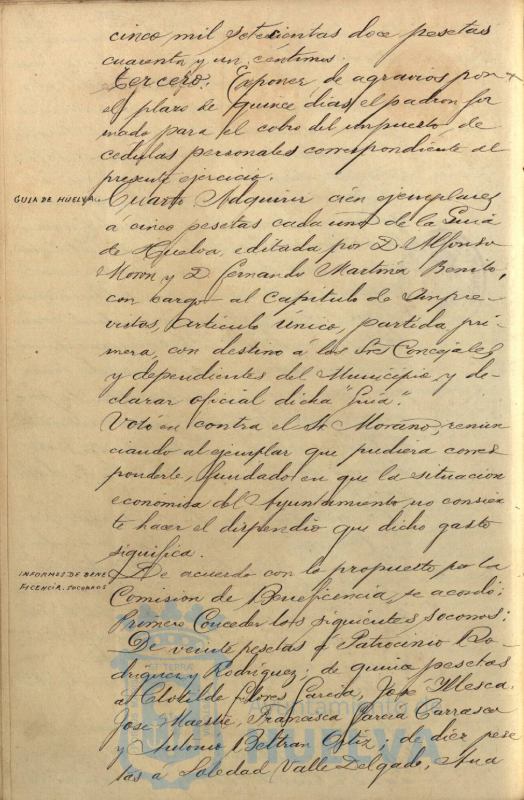 cinco mil setecientas doce pesetas
cuarenta y un céntimos.
Tercero. Exponer de agravios por
el plazo de quince dias, el padron for
mado para el cobro del impuesto de
cédulas personales correspondiente al
presente ejercicio.
GUIA DE HUELVA.
Cuarto Adquirir cien ejemplares
á cinco pesetas cada uno de la Guia
de Huelva, editada por D. Alfonso
Moron y D. Fernando Martina Benito,
con cargo al capitulo de Impre-
vistos, artículo único, partida pri-
mera, con destino á los Sres Concejales
y dependientes del Municipio y de-
clarar oficial dicha "Guia".
Votó en contra el Sr. Moraño, renun
ciando al ejemplar que pudiera corres
ponderle, fundado en que la situación
económica del Ayuntamiento no consien
te hacer el dispendio que dicho gasto
significa.
INFORMES DE BENE
FICENCIA. SOCORROS
De acuerdo con lo propuesto por la
Comision de Beneficencia, se acordó:
Primero Conceder los siguientes socorros:
De veinte pesetas á Patrocinio Ro-
driguez y Rodriguez; de quince pesetas
a Clotilde Flores Garcia, José Mesca.
José Maestre, Francisca Garcia Carrasco
y Antonio Beltran Ortiz; de diez pese
tas a Soledad Valle Delgado, Ana
Ayuntamiento de
HUELVA